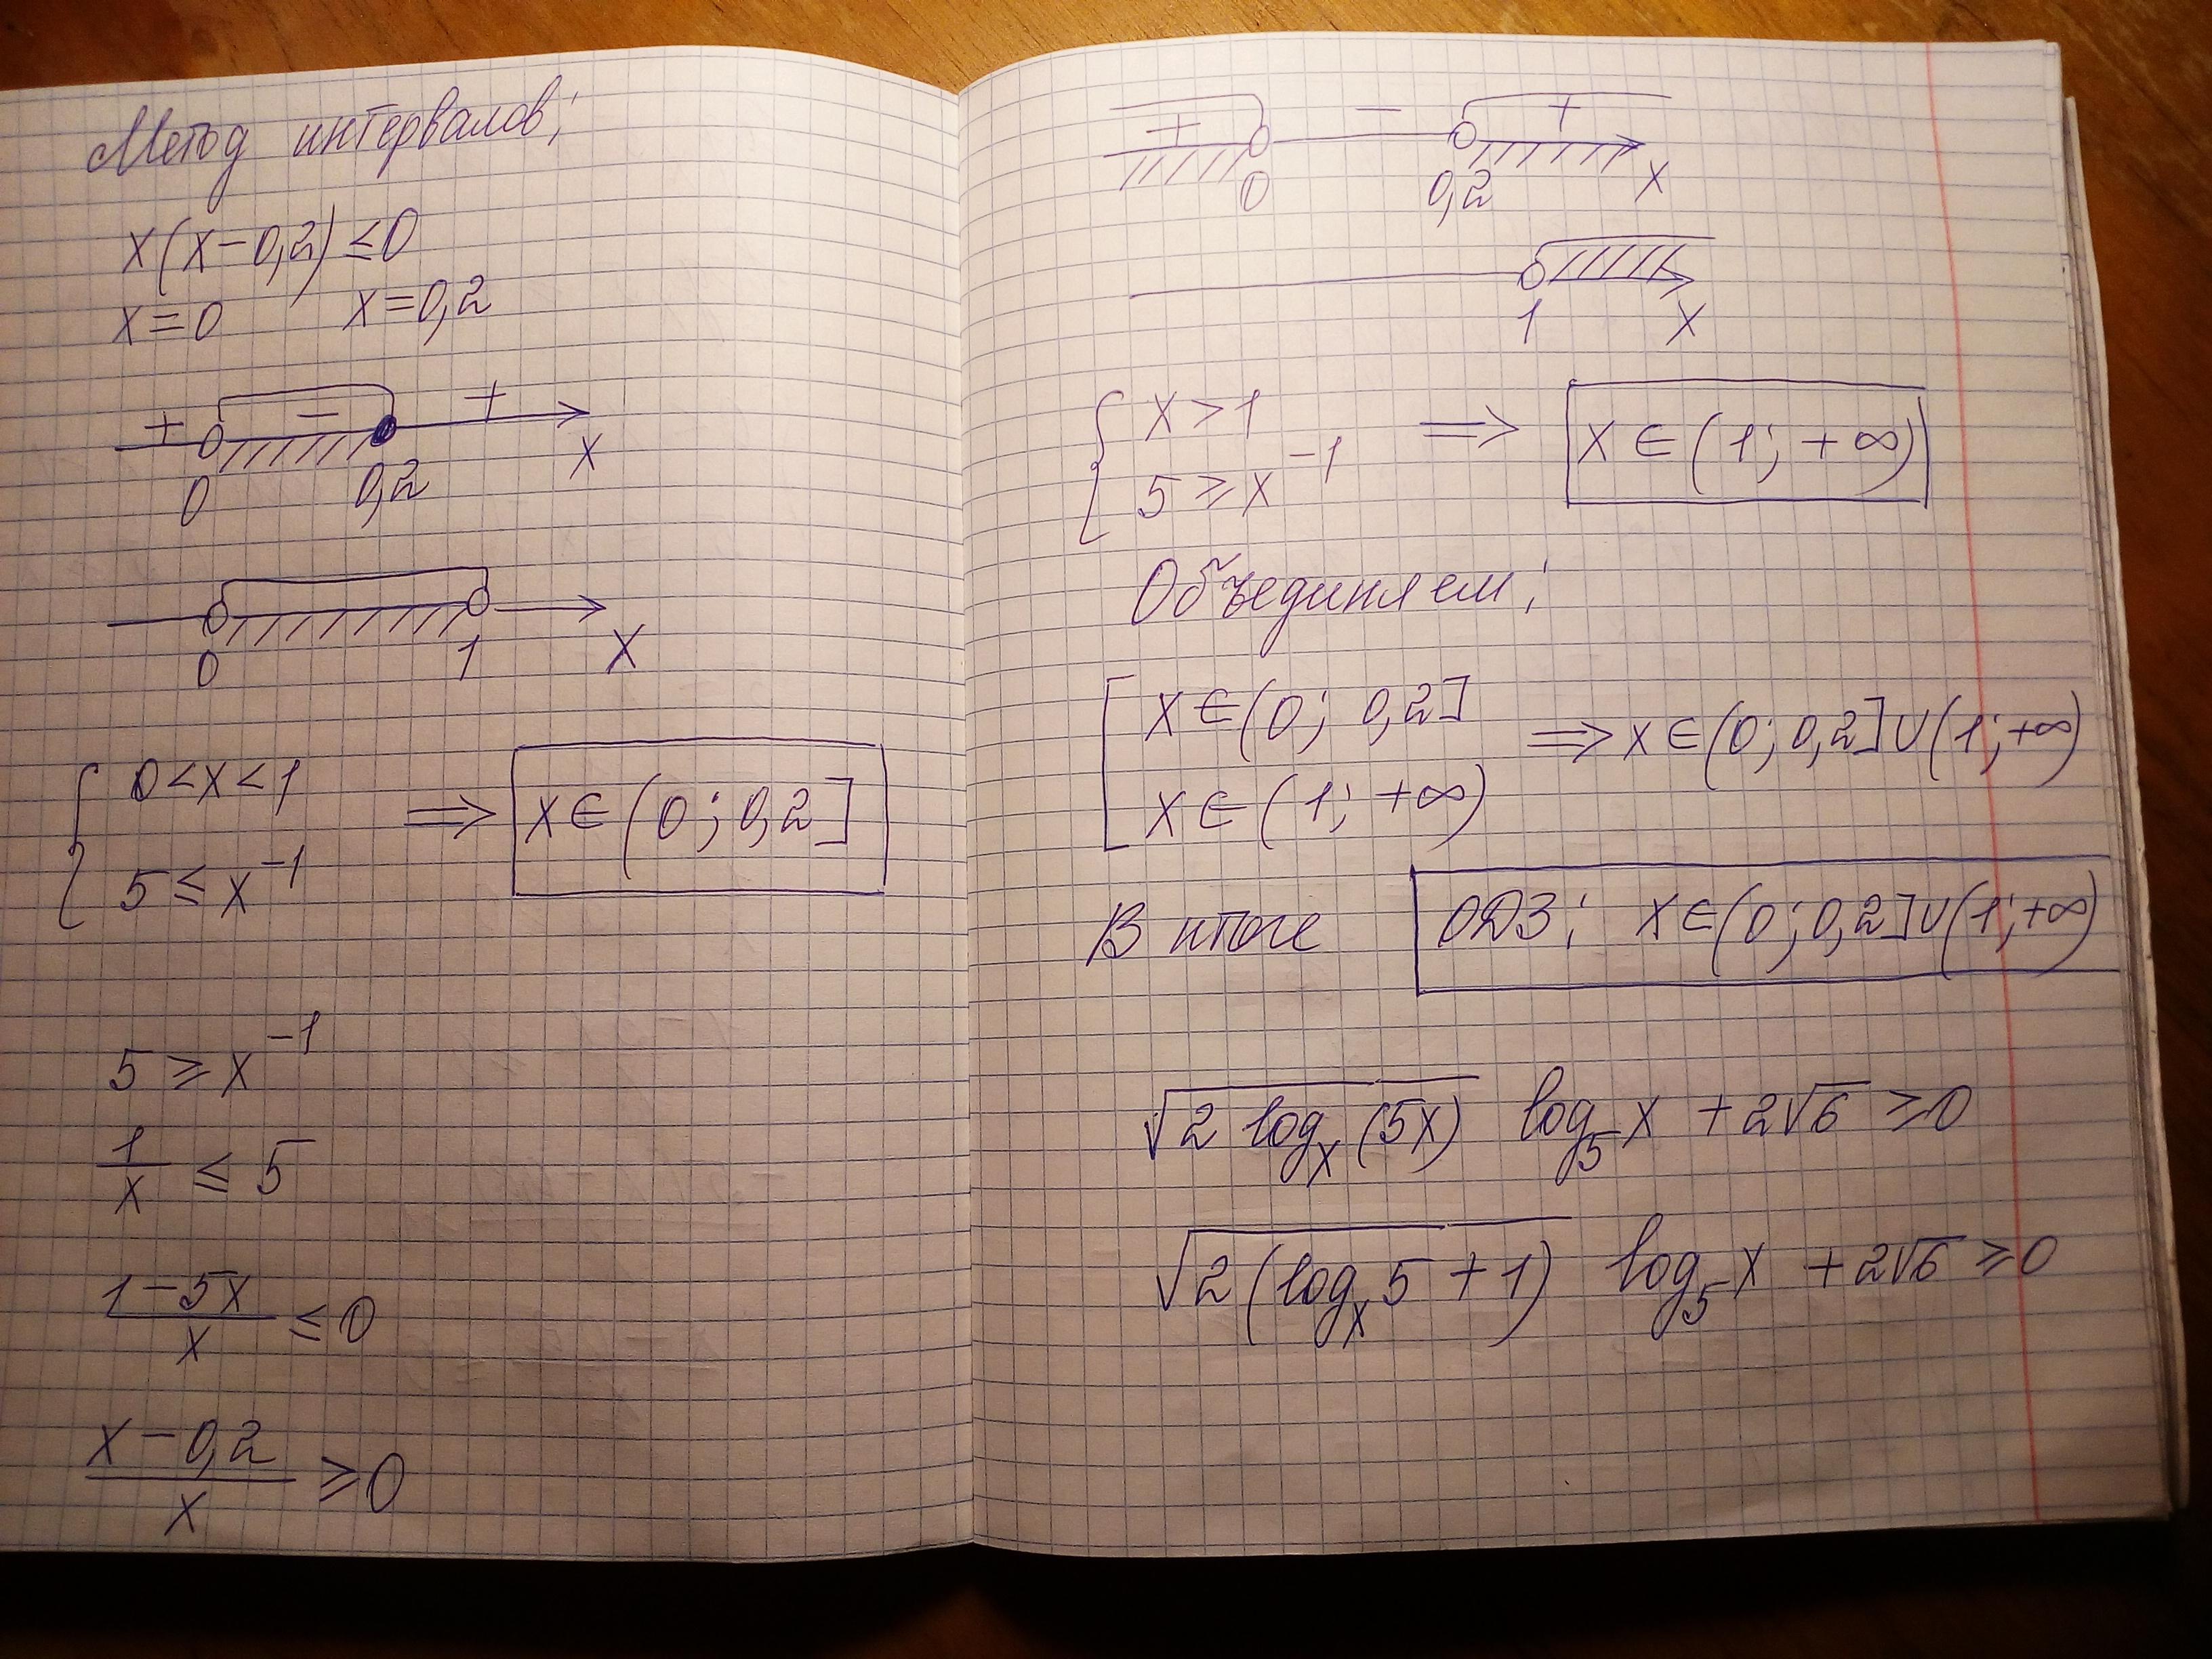 Метод интервалов:
x(x-0,2) ≤ 0
x=0 x=0,2
+ - +
0 0,2 x
0 1 x
{ 0<x<1
5 ≤ x⁻¹ ⟹ x∈(0; 0,2]
5 ≥ x⁻¹
1/x ≤ 5
(1-5x)/x ≤ 0
(x-0,2)/x ≥ 0
+ - +
0 0,2 x
1 x
{ x>1
5 ≥ x⁻¹ ⟹ x∈(1; +∞)
Объединяем:
[ x∈(0; 0,2]
x∈(1; +∞) ⟹ x∈(0; 0,2]∪(1; +∞)
В итоге ОДЗ: x∈(0; 0,2]∪(1; +∞)
√(2 logₓ(5x)) log₅x + 2√6 ≥ 0
√(2(logₓ5 + 1)) log₅x + 2√6 ≥ 0